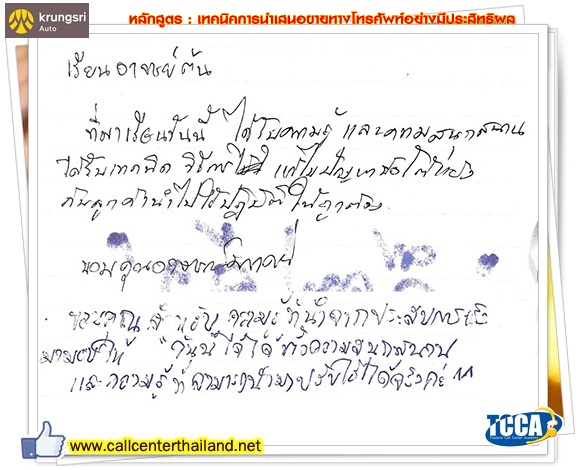 krungsri
Auto
หลักสูตร : เทคนิคการนำเสนอขายทางโทรศัพท์อย่างมีประสิทธิผล
เรียน อาจารย์ต้น
ที่มาเรียนวันนี้ ได้รับความรู้ และความสนุกสนาน
ได้รับเทคนิค วิธีการ แก้ไขปัญหา
กับลูกค้านำไปใช้ปฏิบัติ ให้ถูกต้อง
ขอบคุณอาจารย์
ขอบคุณ สำหรับ ความรู้ที่นำจากประสบการณ์
มาแชร์ให้ วันนี้ได้ ทั้งความสนุกสนาน
และความรู้ที่สามารถนำมาปรับใช้ได้จริงค่ะ
TCCA
Thailand Call Center Academy
www.callcenterthailand.net